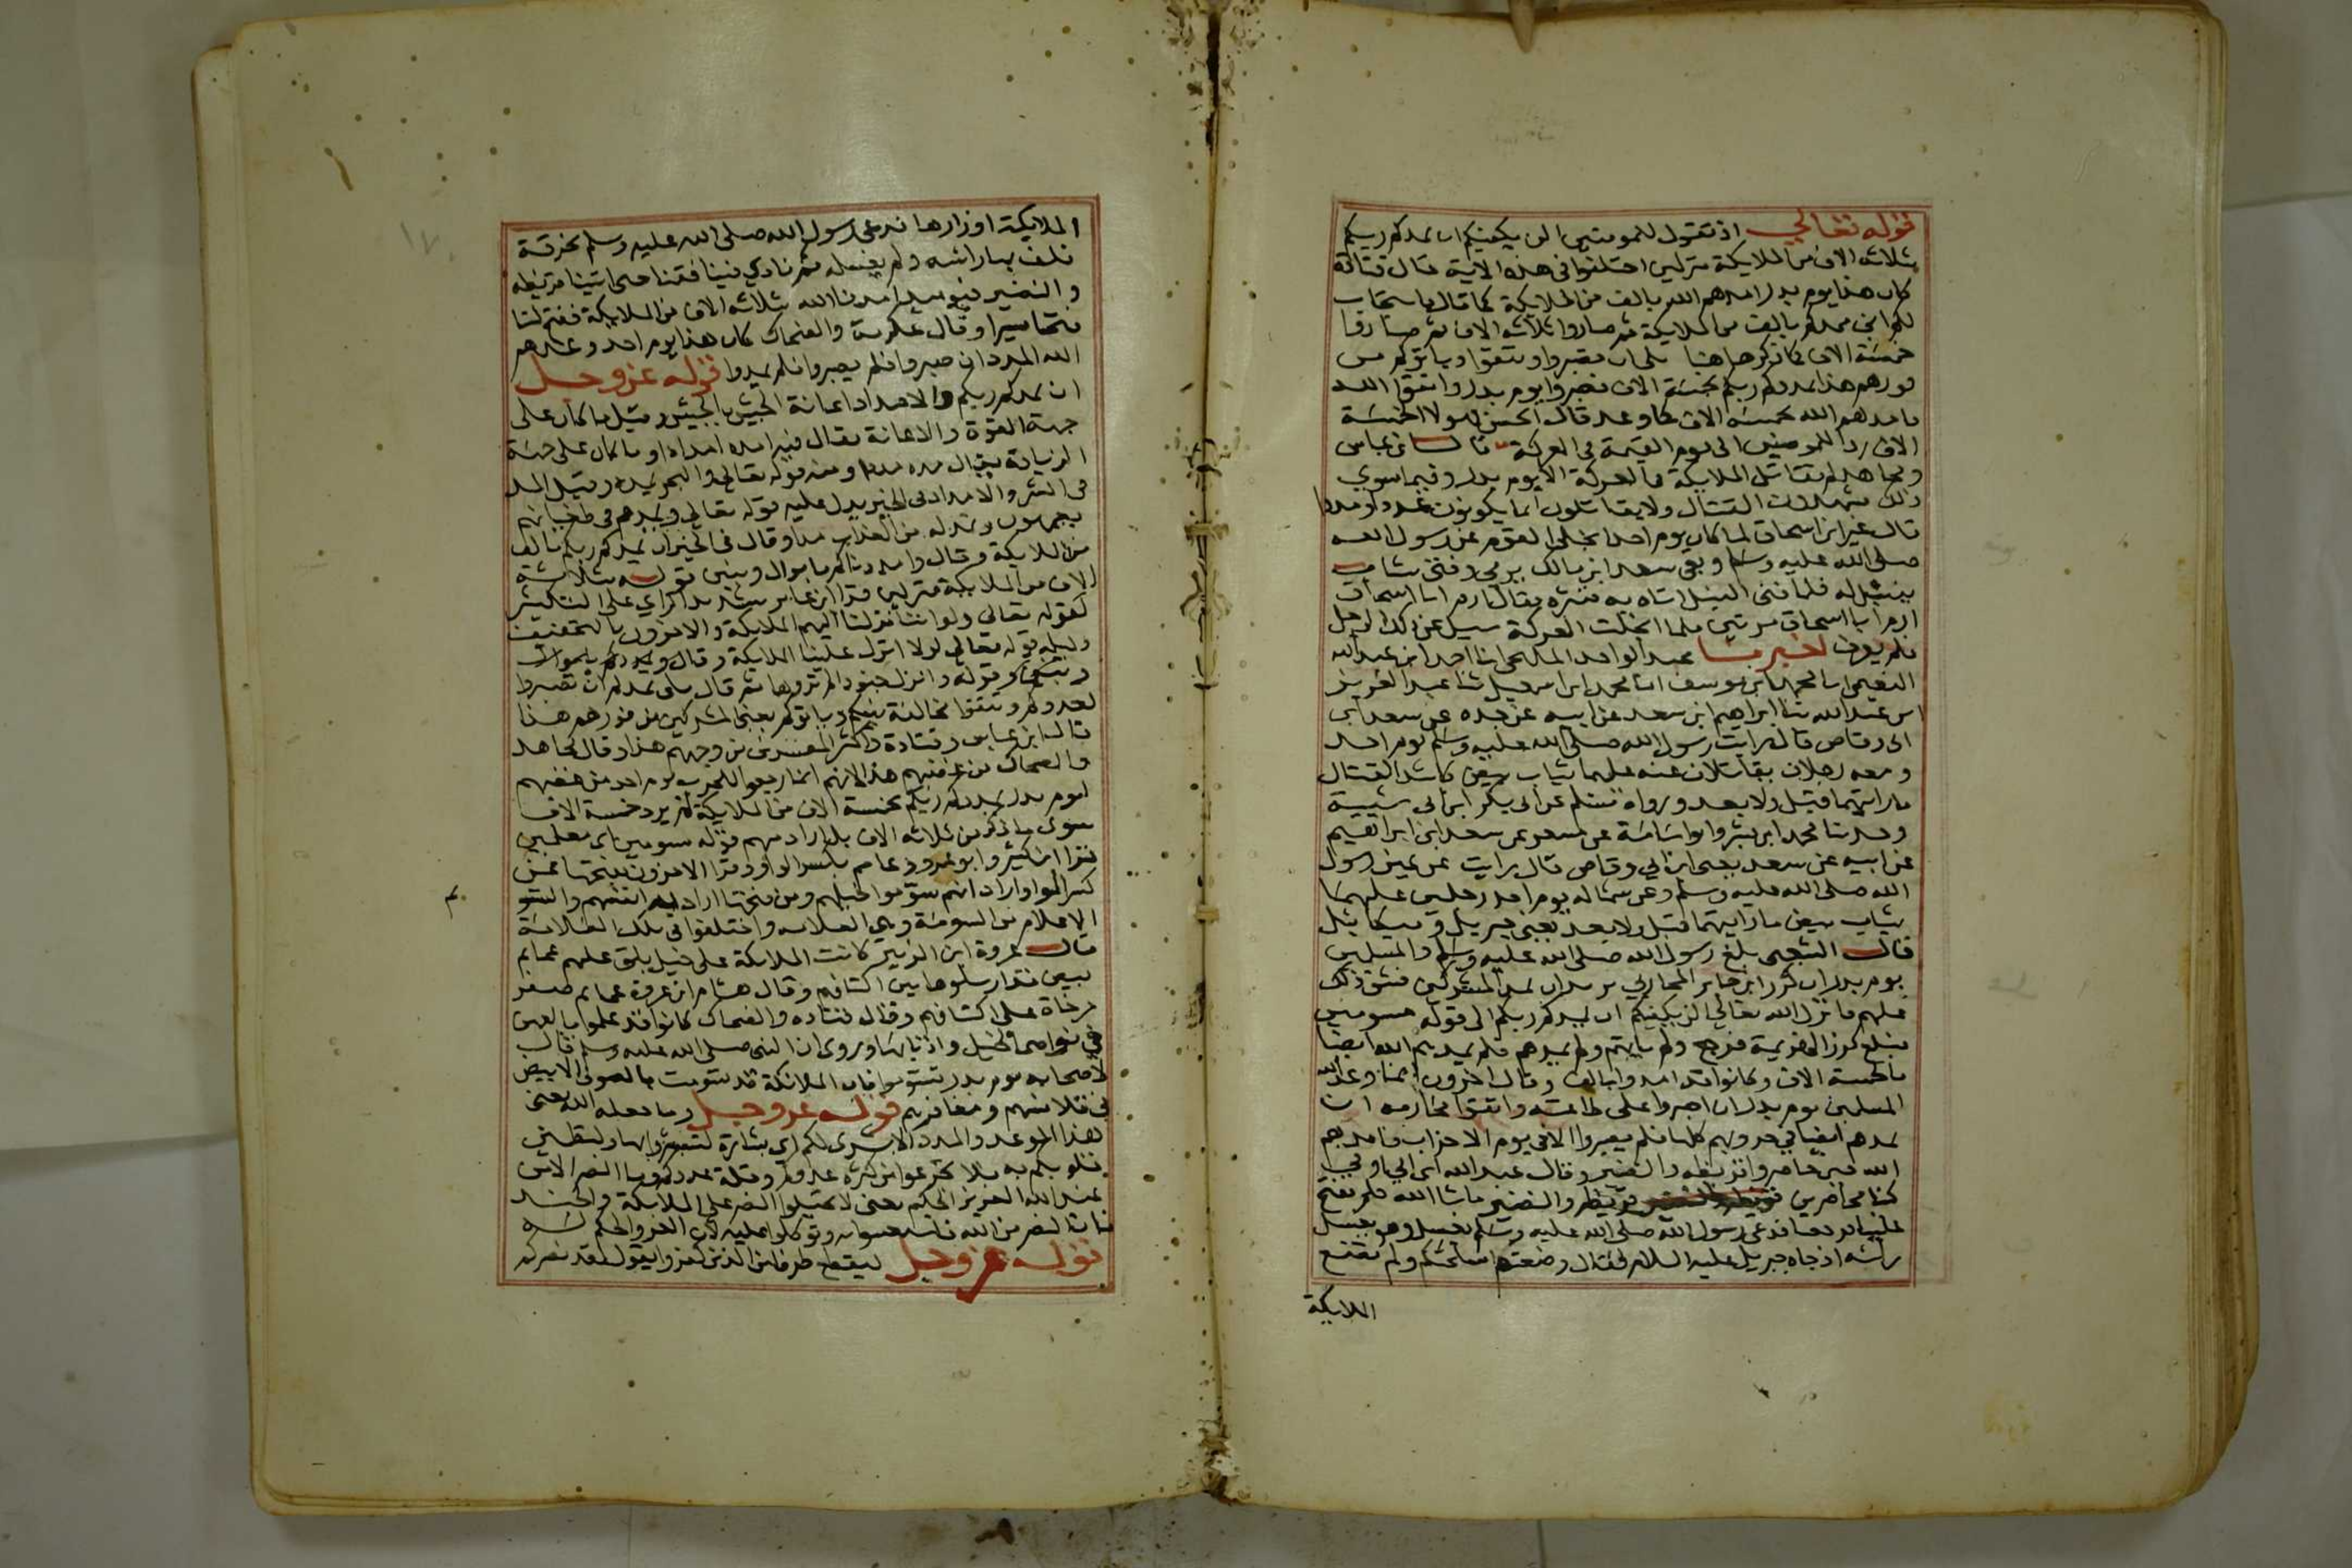 قوله تعالي اذ تقول للمومنين الن يكفيكم ان يمدكم ربكم
بثلاثه الاف من الملايكة منزلين اختلفوا في هذه الاية فقال قتادة
كان هذا يوم بدر امدهم الله بالف من الملايكة كما قال فاستجاب
لكم اني ممدكم بالف من الملايكة ثم صاروا ثلاثه الاف ثم صاروا
خمسة الاف كما ذكر هاهنا بلى ان تصبروا وتتقوا وياتوكم من
فورهم هذا يمددكم ربكم بخمسة الاف فصبروا يوم بدر واتقوا الله
فامدهم الله بخمسه الاف كما وعد قال الحسن فهولا الخمسة
الاف ردا للمومنين الى يوم القيمة في المعركة قال ابن عباس
ومجاهد لم تقاتل الملايكة في المعركة الا يوم بدر وفيما سوي
ذلك يشهدون القتال ولا يقاتلون انما يكونون عددا ومددا
قال عمير ابن اسحاق لما كان يوم احد انجلى القوم عن رسول الله
صلى الله عليه وسلم وبقي سعد ابن مالك يرمي وفتى شاب
ينتبل له فلما فنى النبل اتاه به فنثره فقال ارم ابا اسحاق
ارم ابا اسحاق مرتين فلما انجلت المعركة سيل عن ذلك الرجل
فلم يعرف اخبرنا عبد الواحد المليحى انا احمد ابن عبد الله
النعيمى انا محمد ابن يوسف انا محمد ابن اسمعيل ثنا عبد العزيز
ابن عبد الله ثنا ابراهيم ابن سعد عن ابيه عن جده عن سعد ابن
ابى وقاص قال رايت رسول الله صلى الله عليه وسلم يوم احد
ومعه رجلان يقاتلان عنه عليهما ثياب بيض كاشد القتال
ما رايتهما قبل ولا بعد ورواه مسلم عن ابى بكر ابن ابى شيبة
وحدثنا محمد ابن بشر وابو اسامة عن مسعر عن سعد ابن ابراهيم
عن ابيه عن سعد يعنى ابن ابي وقاص قال رايت عن يمين رسول
الله صلى الله عليه وسلم وعن شماله يوم احد رجلين عليهما
ثياب بيض ما رايتهما قبل ولا بعد يعنى جبريل وميكائيل
قال الشعبى بلغ رسول الله صلى الله عليه وسلم والمسلمين
يوم بدر ان كرز ابن جابر المحاربي يريد ان يمد المشركين فشق ذلك
عليهم فانزل الله تعالي الن يكفيكم ان يمدكم ربكم الى قوله مسومين
فبلغ كرز الهزيمة فرجع ولم ياتهم ولم يمدهم فلم يمدهم الله ايضا
بالخمسة الاف وكانوا قد امدوا بالف وقال اخرون انما وعد الله
المسلمين يوم بدر ان اصبروا على طاعته واتقوا محارمه ان
يمدهم ايضا في حروبهم كلها فلم يصبروا الا في يوم الاحزاب فامدهم
الله حين حاصروا قريظه والنضير وقال عبد الله ابن ابي اوفي
كنا محاصرين قريظة والنضير ما شا الله فلم يفتح
علينا فرجعنا فدعى رسول الله صلى الله عليه وسلم بغسل وهو يغسل
راسه اذ جاه جبريل عليه السلام فقال وضعتم اسلحتكم ولم تضع
الملايكة
الملايكة اوزارها فدعى رسول الله صلى الله عليه وسلم بخرقة
فلف بها راسه ولم يغسله ثم نادي فينا فقمنا حتى اتينا قريظه
والنضير فيوميذ امدنا الله بثلاثه الاف من الملايكة ففتح لنا
فتحا يسيرا وقال عكرمة والضحاك كان هذا يوم احد وعدهم
الله المدد ان صبروا فلم يصبروا فلم يمدوا قوله عز وجل
ان يمدكم ربكم والامداد اعانة الجيش بالجيش وقيل ما كان على
جهة القوة والاعانة يقال فيه امده امدادا وما كان على جهة
الزيادة يقال مده مدا ومنه قوله تعالى والبحر يمده وقيل المد
في الشر والامداد في الخير يدل عليه قوله تعالى ويمدهم في طغيانهم
يعمهون ونمد له من العذاب مدا وقال في الخير ان يمدكم ربكم بالف
من الملايكة وقال وامددناكم باموال وبنين قوله بثلاثة
الاف من الملايكة منزلين قرا ابن عامر بتشديد الزاي على التكثير
كقوله تعالى ولو اننا نزلنا اليهم الملايكة والاخرون بالتخفيف
دليله قوله تعالى لولا انزل علينا الملايكة وقال ويمددكم باموال
وبنين وقوله وانزل جنودا لم تروها ثم قال بلى يمدكم ان تصبروا
لعدوكم وتتقوا مخالفة نبيكم وياتوكم يعنى المشركين من فورهم هذا
قال ابن عباس وقتادة واكثر المفسرين من وجههم هذا وقال مجاهد
والضحاك من غضبهم هذا لانهم انما رجعوا للحرب يوم احد من غضبهم
ليوم بدر يمددكم ربكم بخمسة الاف من الملايكة لم يرد خمسة الاف
سوى ما ذكر من ثلاثه الاف بل اراد معهم قوله مسومين اى معلمين
قرا ابن كثير وابو عمرو وعاصم بكسر الواو وقرا الاخرون بفتحها فمن
كسر الواو اراد انهم سوموا خيلهم ومن فتحها اراد به انفسهم والتسويم
الاعلام من السومة وهي العلامه واختلفوا في تلك العلامة
فقال عروة ابن الزبير كانت الملايكة على خيل بلق عليهم عمايم
بيض قد ارسلوها بين اكتافهم وقال هشام ابن عروة عمايم صفر
مرخاة على اكتافهم وقال قتاده والضحاك كانوا قد علموا بالعهن
في نواصى الخيل واذنابها وروى ان النبى صلى الله عليه وسلم قال
لاصحابه يوم بدر تسوموا فان الملائكة قد تسومت بالصوف الابيض
في قلانسهم ومغافرهم قوله عز وجل وما جعله الله يعنى
هذا الوعد والمدد الا بشرى لكم اي بشارة لتستبشروا بها ولتطمين
قلوبكم به فلا تجزعوا من كثره عدوكم وقلة عددكم وما النصر الا من
عند الله العزيز الحكيم يعنى لا تحيلوا النصر على الملايكة والجند
فان النصر من الله فاستعينوا به وتوكلوا عليه لان العز والحكم له
قوله عز وجل ليقطع طرفا من الذين كفروا يقول لقد نصركم
١٧٠